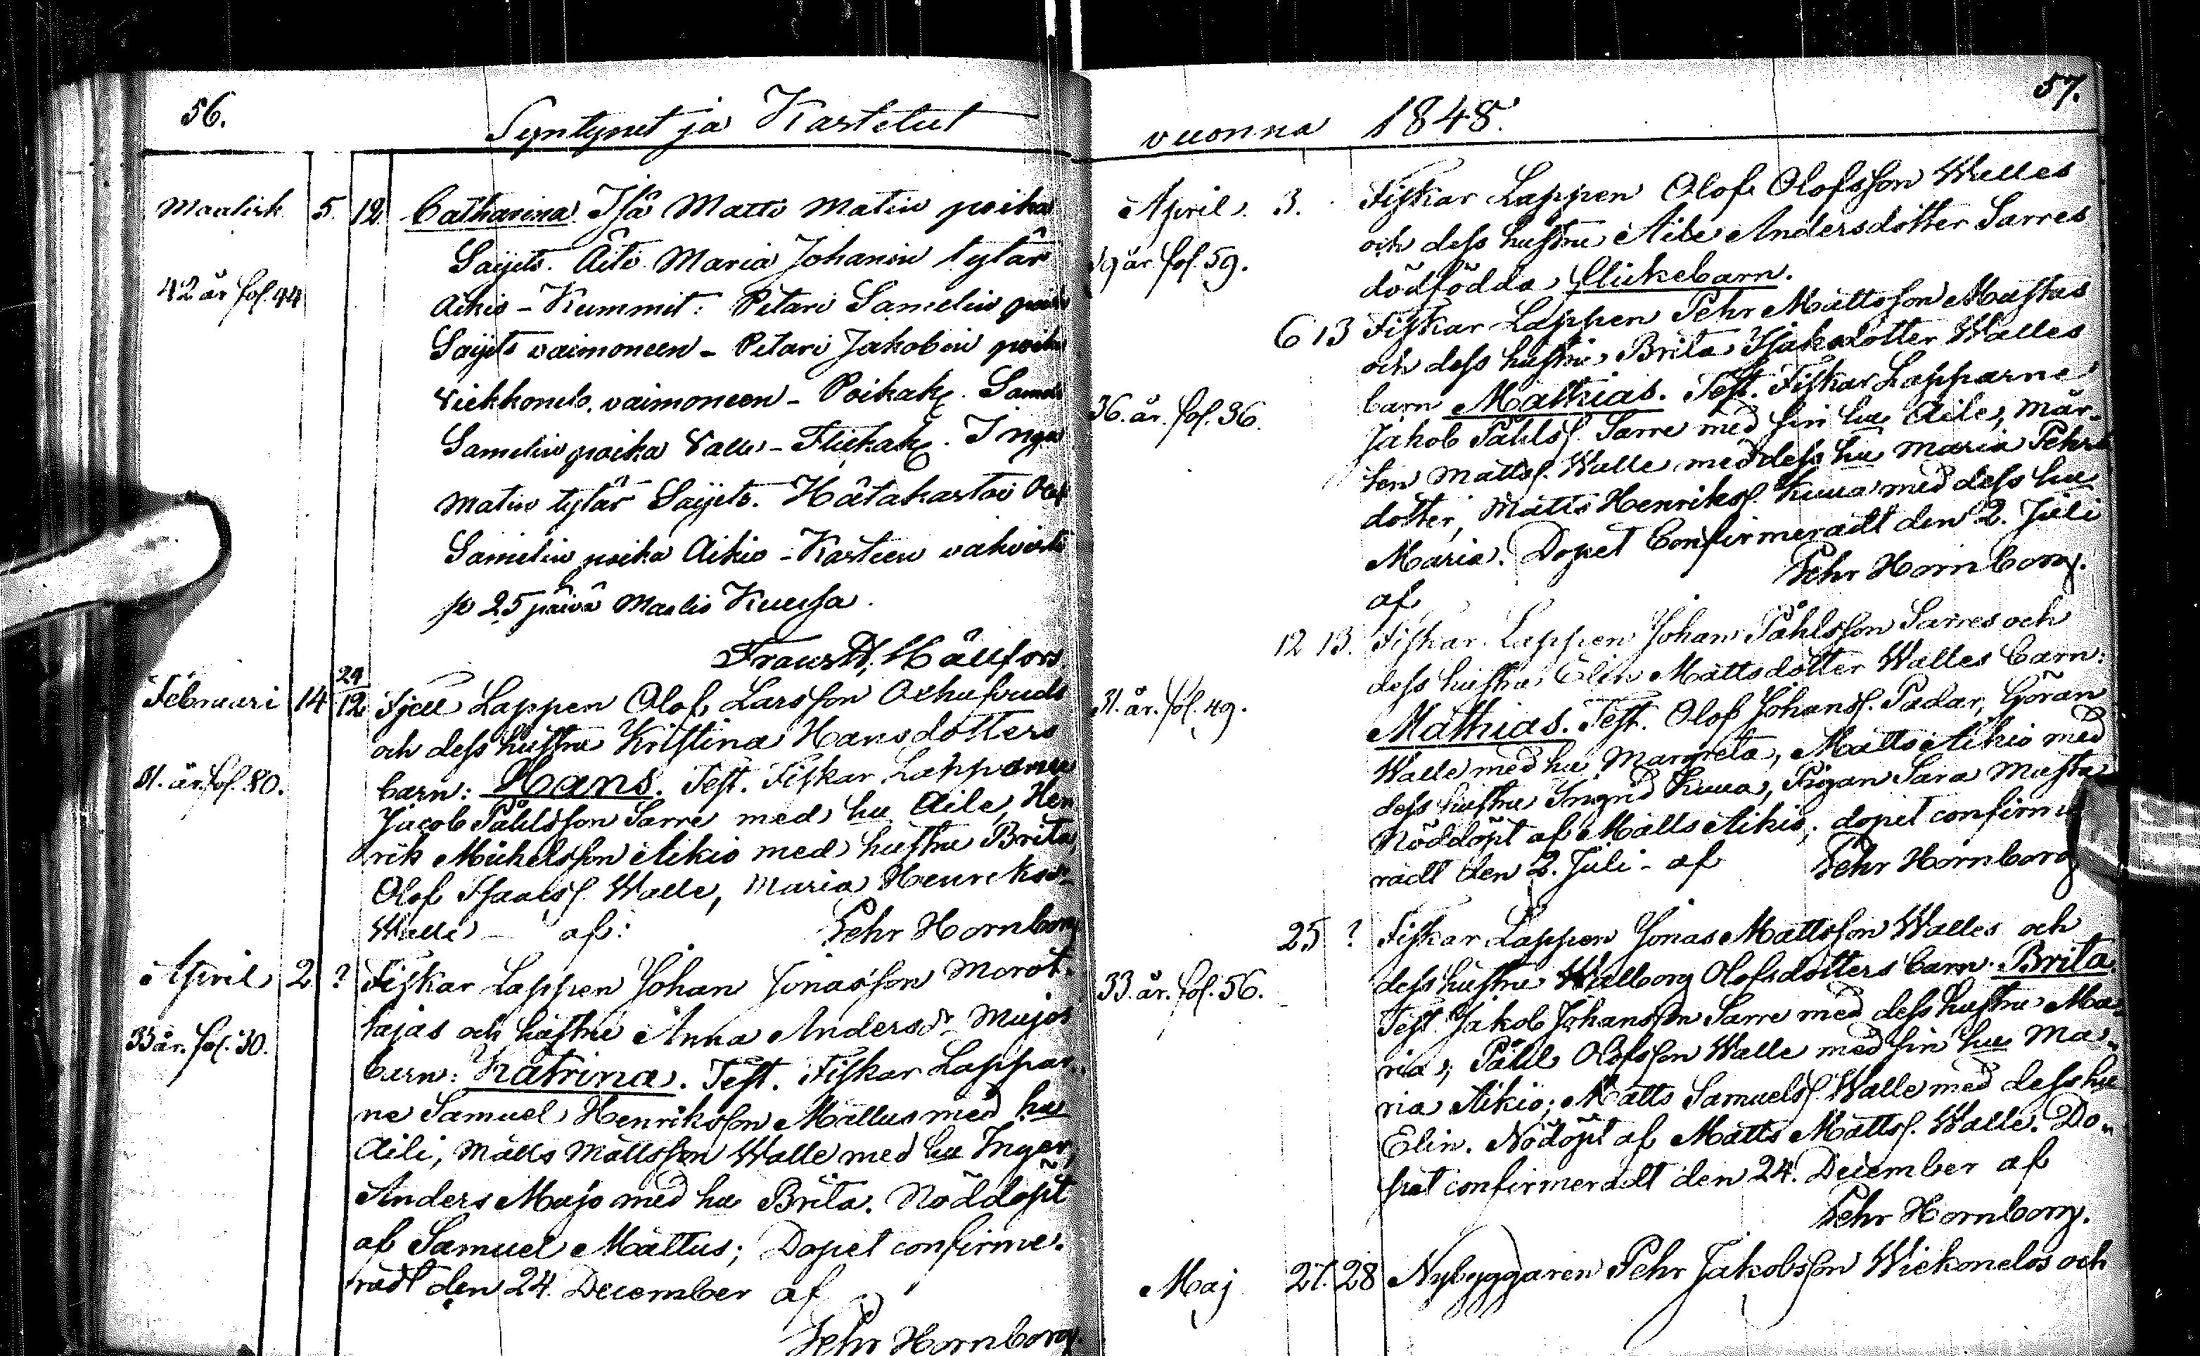 56.
Syntynet ja Kastetut
Maalisk 5. 12 Catharina. Isä Matti Matin poika
Saijets. Äiti Maria Johanin tytär
42 år fol. 44
Aikio - Kummit: Petari Samelin poika
Saijets vaimoneen - Petari Jakobin poika
vaimoneen - Poikak. Samel
Samelin poika Valle - Flickak. Inga
Matin tytär Saijets. Hätäkastoi Olof
Samelin poika Aikio - Kasteen vahvisti
p 25 päivä Maalis Kuussa.
Frans W. Hällfors.
Februari 14 29/12 Fjell Lappen Olof Larsson
och dess hustru Kristina Hansdotters
31. år. fol. 80.
barn: Hans. Test. Fiskar Lapparne
Jacob Påhlsson Sarre med hu Aile, Hen
rik Michelsson Aikio med hustru Brita,
Olof Isaakss. Walle, Maria Henriksd.
Walle - af: Pehr Hornborg
April 2 ? Fiskar Lappen Johan Jonasson Morot-
tajas och hustru Anna Andersdr Mujos
33 år. fol. 30.
barn: Katrina. Test. Fiskar Lappar-
ne Samuel Henriksson Mattus med hu
Aili, Matts Mattsson Walle med hu Inger,
Anders Mujo med hu Brita. Nöddöpt
af Samuel Mattus; Dopet confirme-
radt den 24. December af
Pehr Hornborg.
57.
vuonna 1848.
April. 3. Fiskar Lappen Olof Olofsson Walles
och dess hustru Aile Andersdotter Sarres
fol. 59.
dödfödda flickebarn.
6 13 Fiskar Lappen Pehr Mattsson Mustas
och dess hustru Brita Isaksdotter Walles
36. år. fol. 36.
barn Mathias. Test. Fiskar Lapparne
Jakob Påhlss. Sarre med sin hu Aile, Mår-
ten Mattss. Walle med dess hu Maria Pehrs
dotter, Matts Henrikss. Kuua med dess hu
Maria. Dopet Confirmeradt den 2. Juli
af Pehr Hornborg.
12 13. Fiskar Lappen Johan Påhlsson Sarres och
dess hustru Elin Mattsdotter Walles barn:
31. år. fol. 49.
Mathias. Test. Olof Johanss. Padar, Göran
Walle med hu Margreta, Matts Aikio med
dess hustru Ingrid Kuua, Pigan Sara Musta
Nöddöpt af Matts Aikio; dopet confirme
radt den 2. Juli - af Pehr Hornborg
25 ? Fiskar Lappen Jonas Mattsson Walles och
dess hustru Walborg Olofsdotters barn. Brita.
33. år. fol. 56.
Test. Jakob Johansson Sarre med dess hustru Ma-
ria; Påhl Olofsson Walle med sin hu Ma-
ria Aikio; Matts Samuelss. Walle med dess hu
Elin. Nödöpt af Matts Mattss. Walle. Do-
pet confirmeradt den 24. December af
Pehr Hornborg.
Maj 27. 28 Nybyggaren Pehr Jakobsson Wiekonelos och